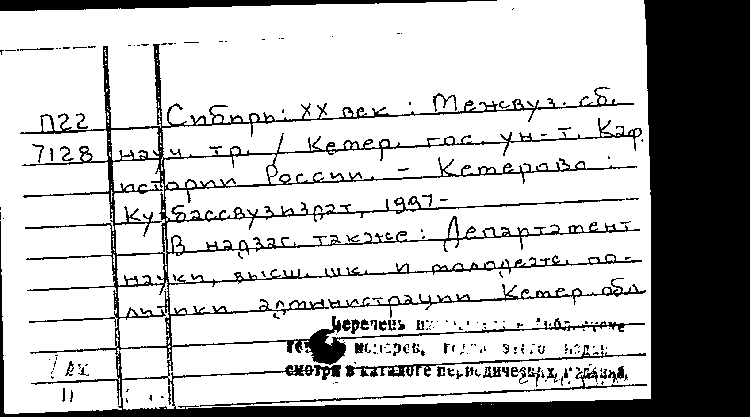 П22 Сибирь: XX век : Межвуз. сб.
7128 науч. тр. / Кемер. гос. ун-т. Каф.
истории России. - Кемерово :
Кузбассвузиздат, 1997-
В надзаг. также: Департамент
науки, высш. шк. и молодеж. по-
литики администрации Кемер. обл
Перечень в библиотеке
номеров, года этого издан
смотри в каталоге периодических изданий.